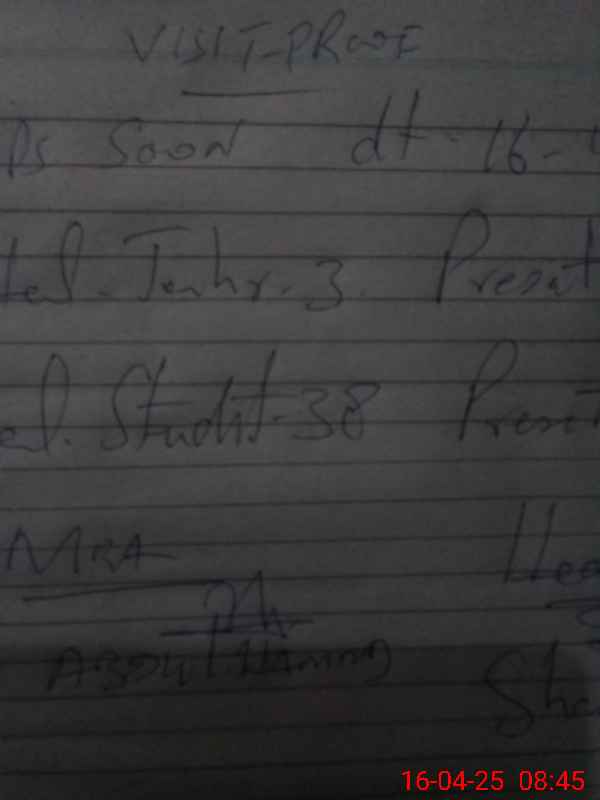 VISIT-PROOF
Ps Soon dt-16-
tal. Teahr. 3. Presat
al. Studt-38 Preset
MRA Hea
ABDUL
Sha
16-04-25 08:45